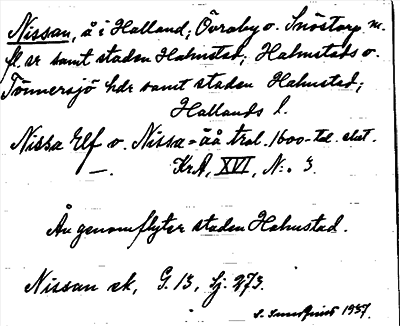 Nissan, å i Halland; Övraby o. Snöstorp m.
fl. sr samt staden Halmstad; Halmstads o.
Tönnersjö hdr samt staden Halmstad;
Hallands l.
Nissa Elf o. Nissa-åå tral. 1600-tal. slut.
— . KrA, XVI, N:o 3.
Ån genomflyter staden Halmstad.
Nissan ek, G. 13, Lj. 273.
S. Sundquist 1937.